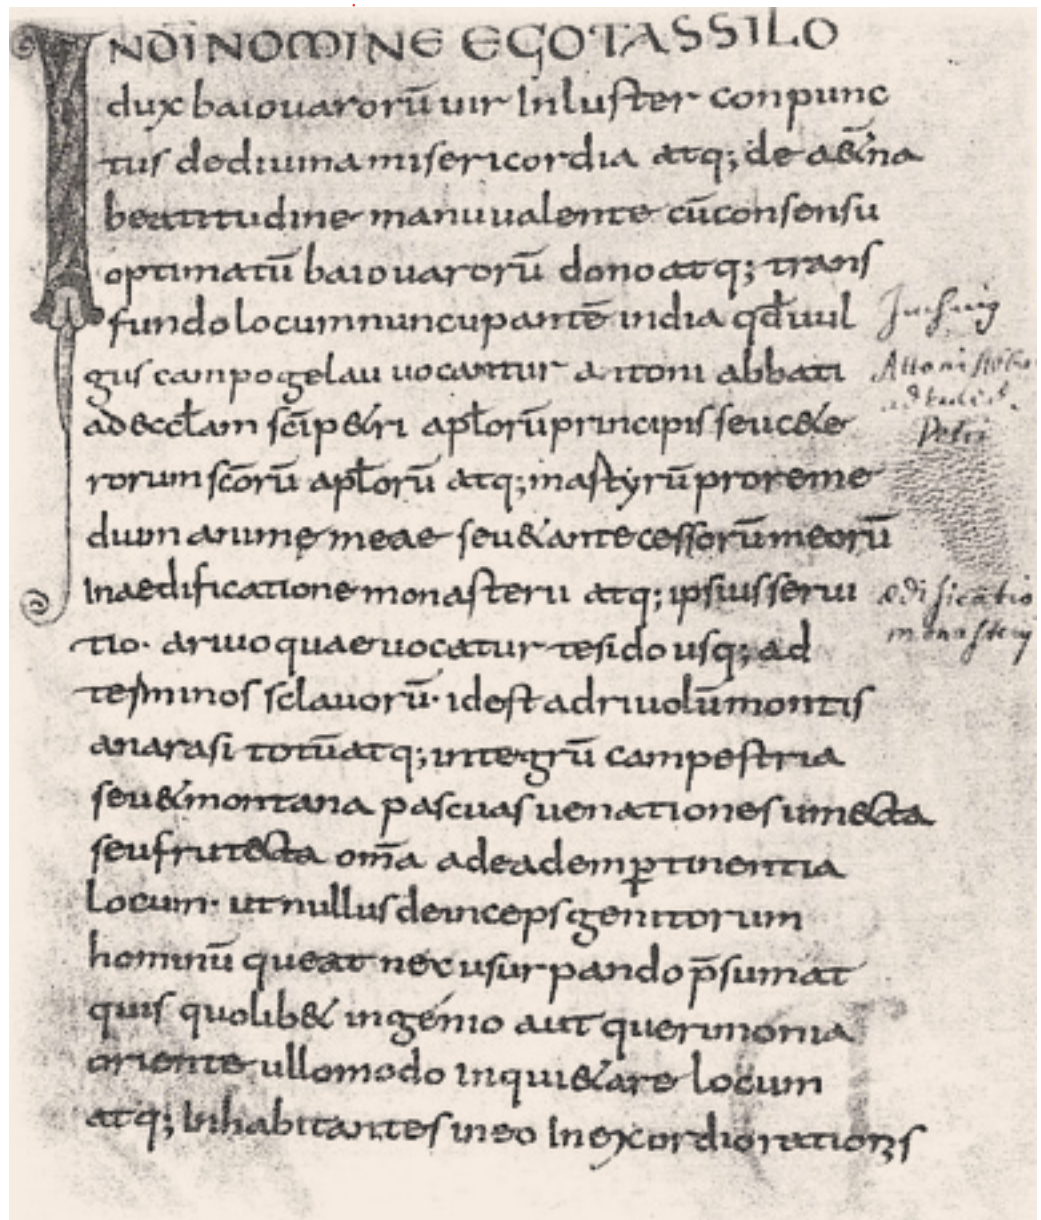 IN DĪ NOMINE EGO TASSILO
dux baiouarorū uir Inluster conpunc
tus dediuina misericordia atq; de a&̄rna
beatitudine manu ualente cū consensu
optimatū baiouarorū dono atq; trans
fundo locum nuncupantē india qđ uul
gus campo gelau uocantur attoni abbati
ad eccl̄am sc̄i p&ri apl̄orū principis seu c&e
rorum sc̄orū apl̄orū atq; martyrū pro reme
dium anime meae seu & antecessorū meorū
In aedificatione monasterii atq; ipsius serui
tio. a riuo quae uocatur tesido usq; ad
terminos sclauorū. id est ad riuolū montis
anarasi totū atq; integrū campestria
seu & montana pascuas uenationes umecta
seu frutecta om̄a ad eadem ꝑtinentia
Locum. ut nullus deinceps genitorum
hominū queat nec usurpando p̄sumat
quis quolib& ingenio aut querimonia
oriente ullo modo inqui&are locum
atq; Inhabitantes in eo In excordio rationis
Inching
Attoni
Petri
ædificatio
monasterij